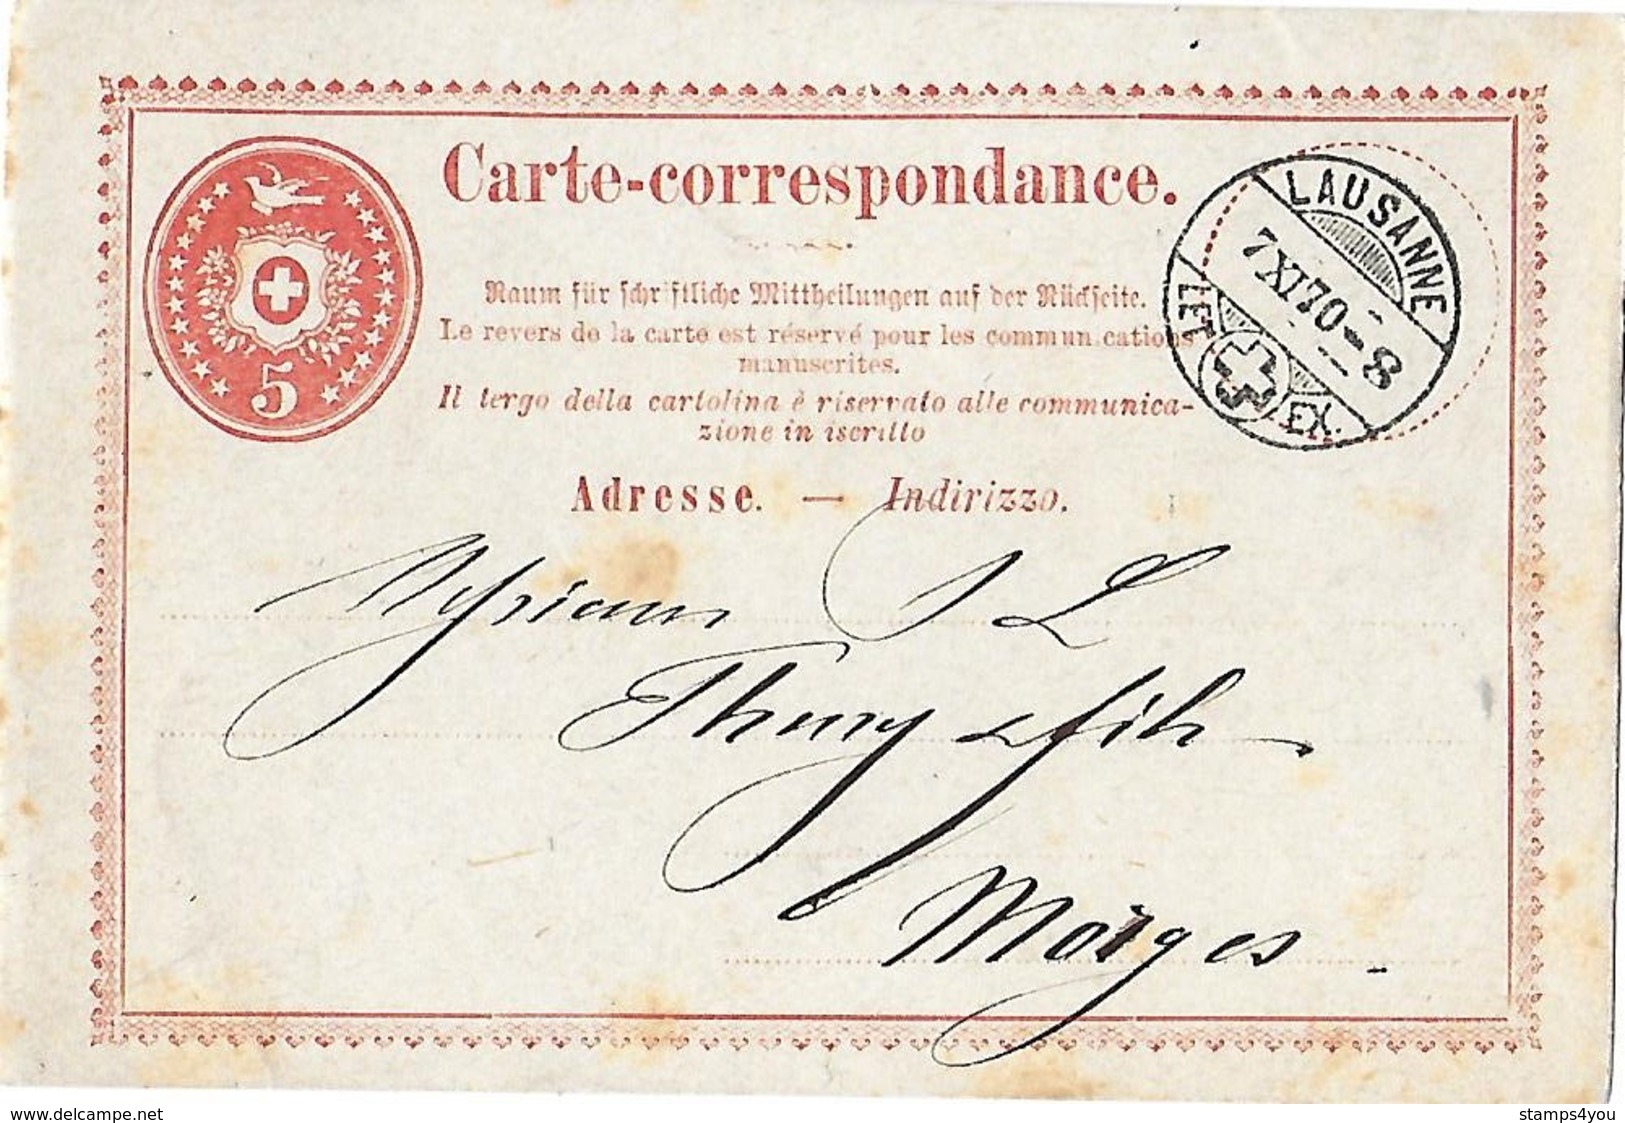 Carte-correspondance.
Raum für schriftliche Mittheilungen auf der Rückseite.
Le revers de la carte est réservé pour les communications
manuscrites.
Il tergo della cartolina è riservato alle communica-
zione in iscritto
Adresse. — Indirizzo.
5
LAUSANNE
7 XI 70 - 8
LET. EX.
L
Thury & fils
Morges.
www.delcampe.net
stamps4you